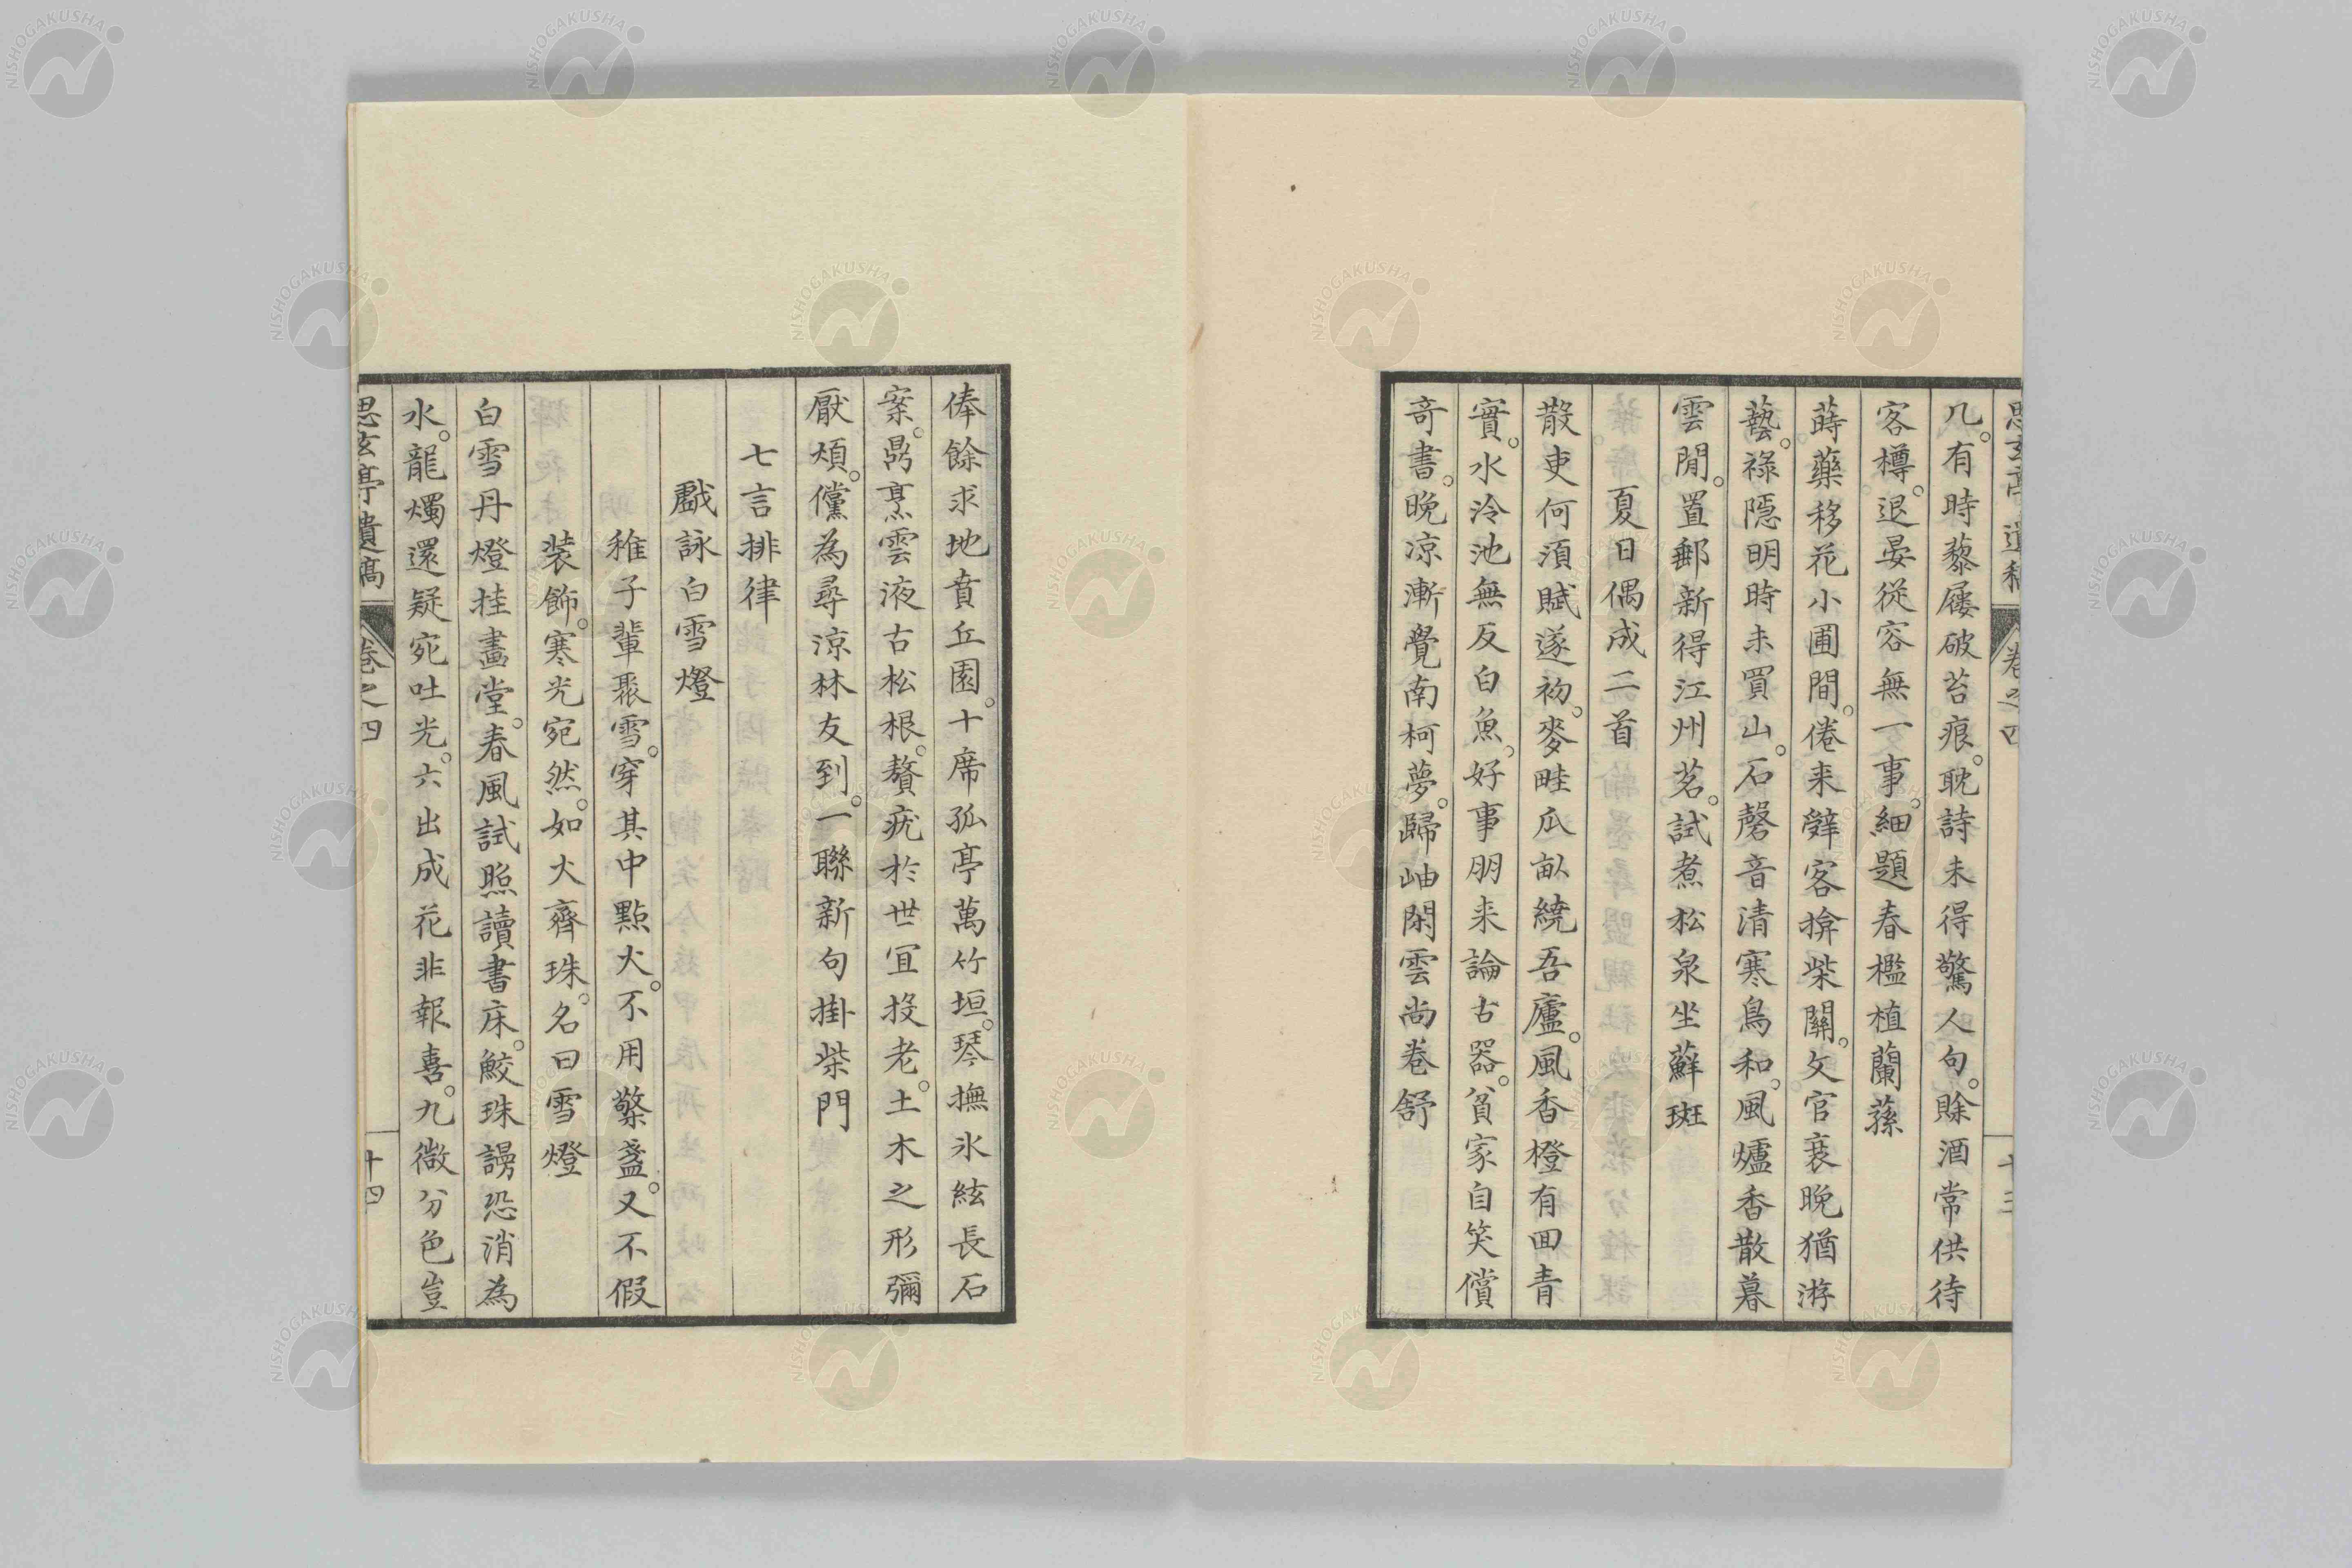 思玄亭遺稿 卷之四 十三
几。有時藜屨破苔痕。耽詩未得驚人句。賖酒常供待
客樽。退晏從容無一事。細題春檻植蘭蓀
蒔藥移花小圃間。倦来辭客揜柴關。文官衰晚猶游
藝。祿隠明時未買山。石磬音清寒鳥和。風爐香散暮
雲閒。置郵新得江州茗。試煮松泉坐蘚斑
夏日偶成二首
散吏何須賦遂初。麥畦瓜畝繞吾廬。風香橙有回青
實。水冷池無反白魚。好事朋来論古器。貧家自笑償
奇書。晚凉漸覺南柯夢。歸岫閑雲尚卷舒
俸餘求地賁丘園。十席孤亭萬竹垣。琴撫氷絃長石
案。鼎烹雲液古松根。贅疣於世宜投老。土木之形彌
厭煩。儻為尋涼林友到。一聯新句掛柴門
七言排律
戲詠白雪燈
稚子輩聚雪。穿其中點火。不用檠盞。又不假
装飾。寒光宛然。如火齊珠。名曰雪燈
白雪丹燈挂畫堂。春風試照讀書床。鮫珠謾恐消為
水。龍燭還疑宛吐光。六出成花非報喜。九微分色豈
思玄亭遺稿 卷之四 十四
NISHOGAKUSHA